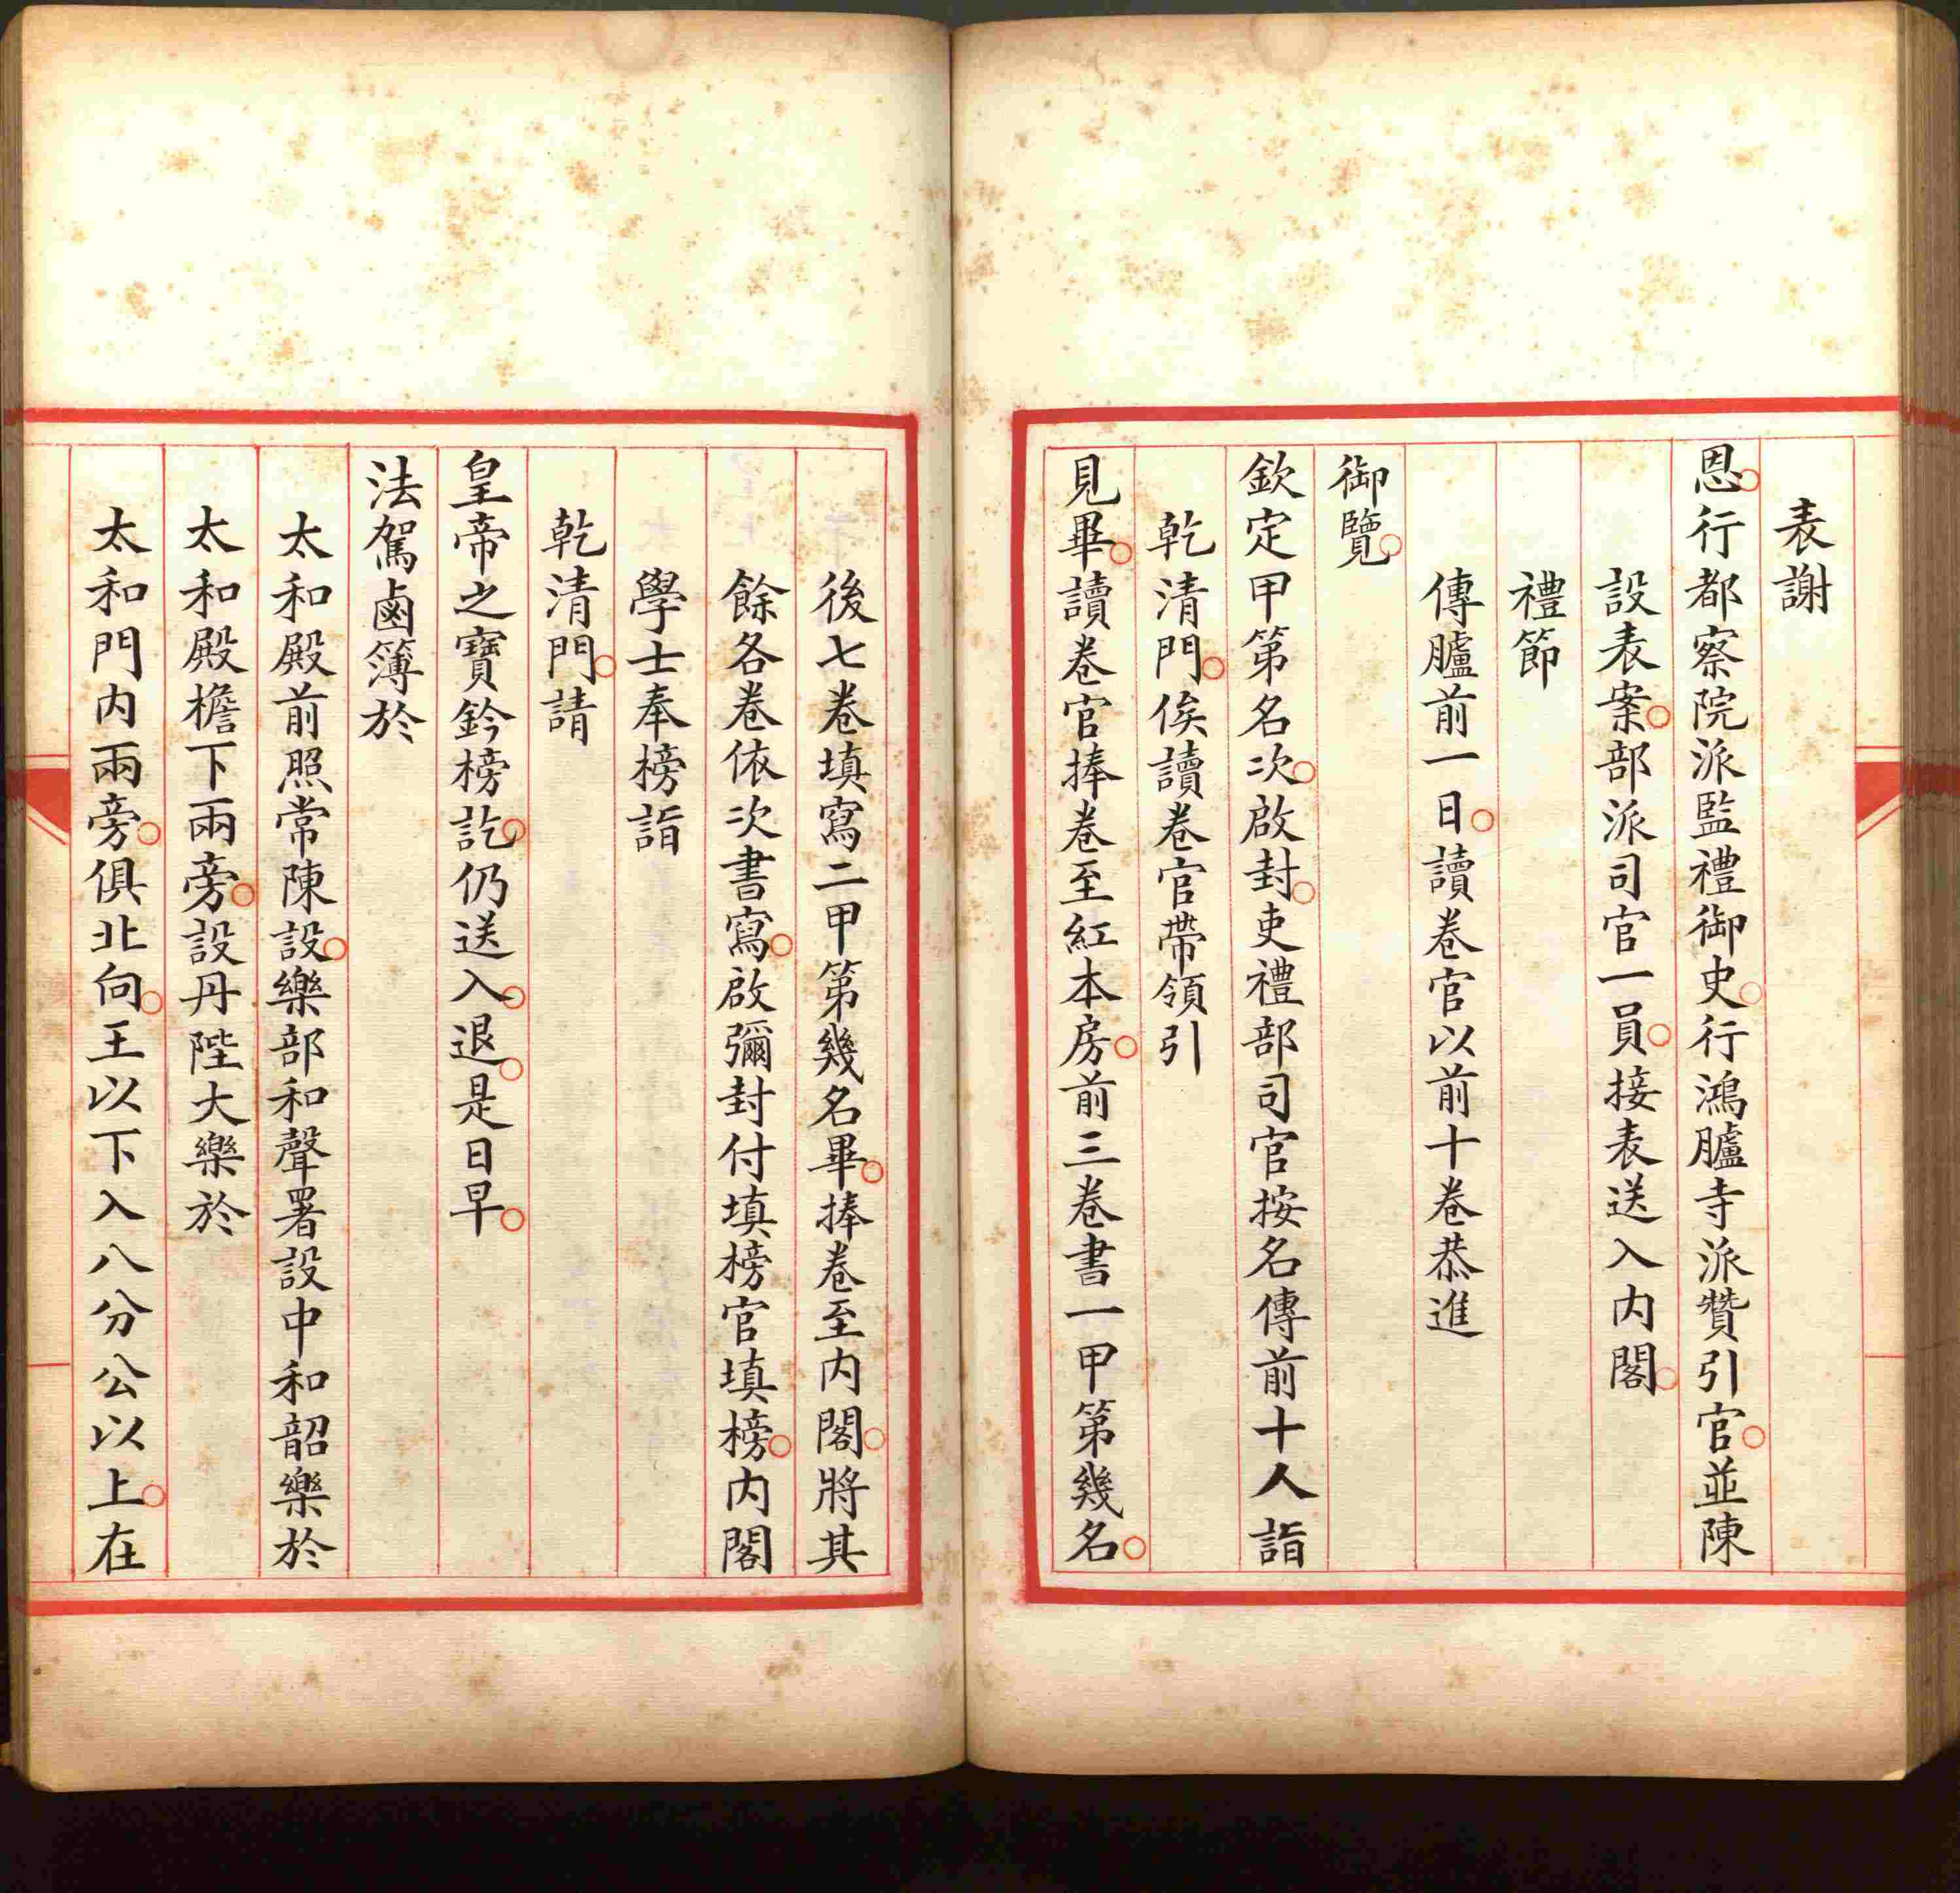 表謝
恩○行都察院派監禮御史○行鴻臚寺派贊引官○並陳
設表案○部派司官一員○接表送入内閣○
禮節
傳臚前一日○讀卷官以前十卷恭進
御覽○
欽定甲第名次○啟封○吏禮部司官按名傳前十人詣
乾清門○俟讀卷官帶領引
見畢○讀卷官捧卷至紅本房○前三卷書一甲第幾名○
後七卷填寫二甲第幾名畢○捧卷至内閣○將其
餘各卷依次書寫○啟彌封付填榜官填榜○内閣
學士奉榜詣
乾清門○請
皇帝之寶鈐榜訖○仍送入○退○是日早○
法駕鹵簿於
太和殿前照常陳設○樂部和聲署設中和韶樂於
太和殿檐下兩旁○設丹陛大樂於
太和門内兩旁○俱北向○王以下入八分公以上○在